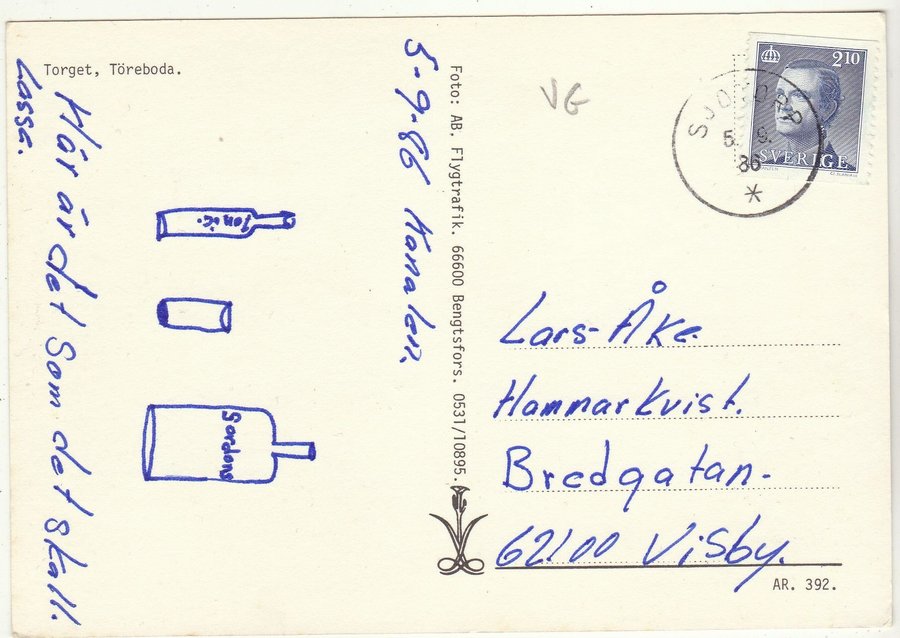 Torget, Töreboda.
5-9-86 Kanalen.
Tonic.
Gordons
Här är det som det skall.
Lasse.
Foto: AB, Flygtrafik. 66600 Bengtsfors. 0531/10895.
VG
2 10
SVERIGE
SJOTORP
5. 9.
86
Lars-Åke.
Hammarkvist.
Bredgatan.
62100 Visby.
AR. 392.